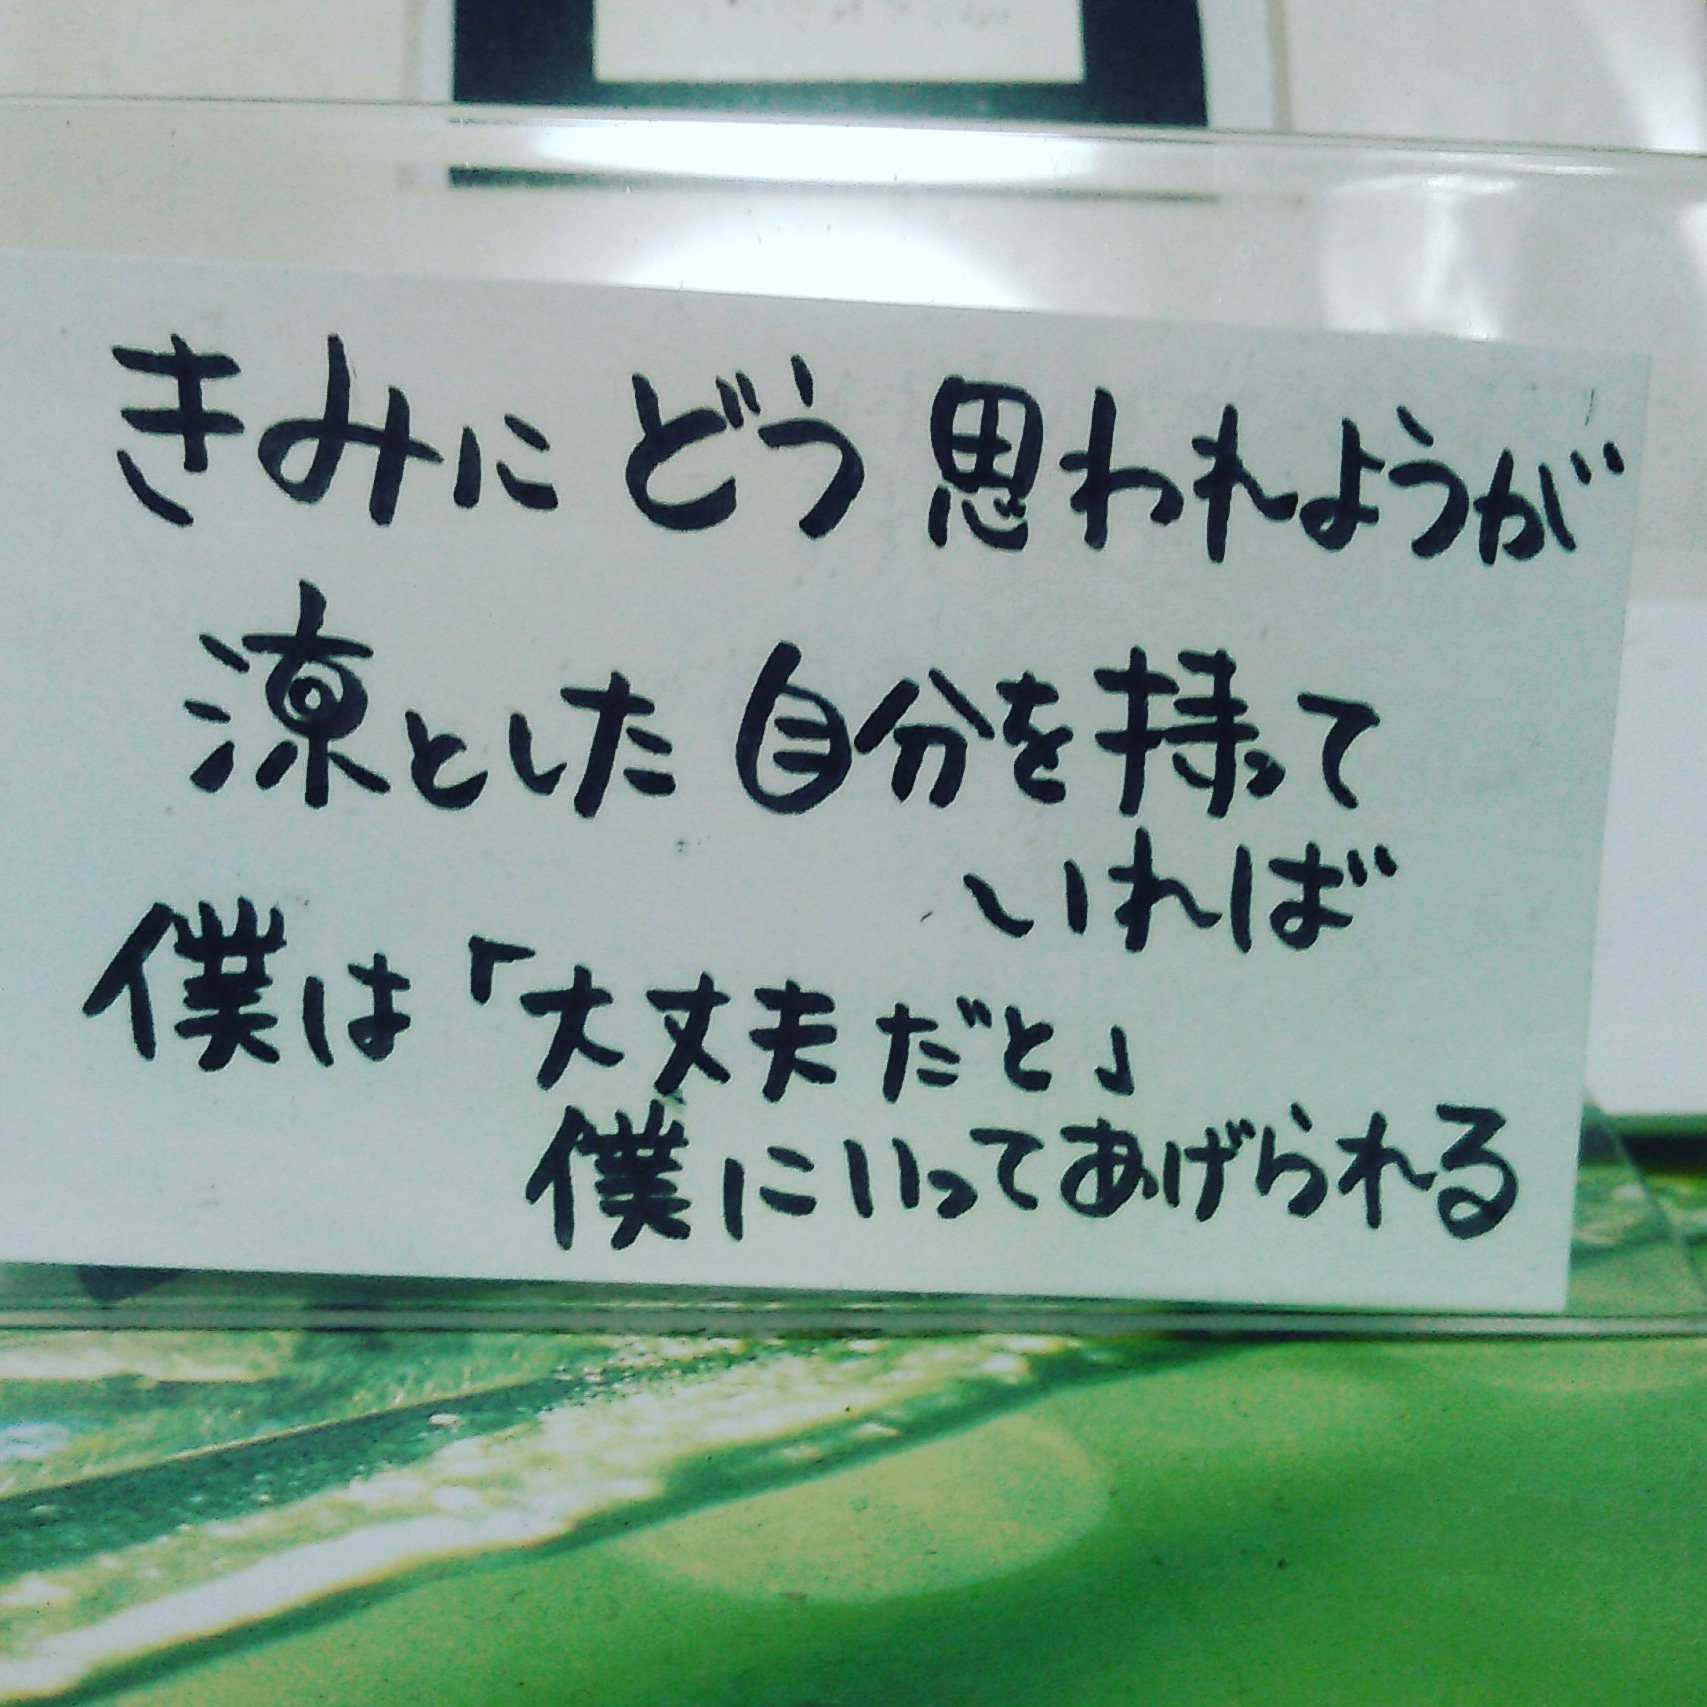 きみにどう思われようが
涼とした自分を持って
いれば
僕は「大丈夫だと」
僕にいってあげられる